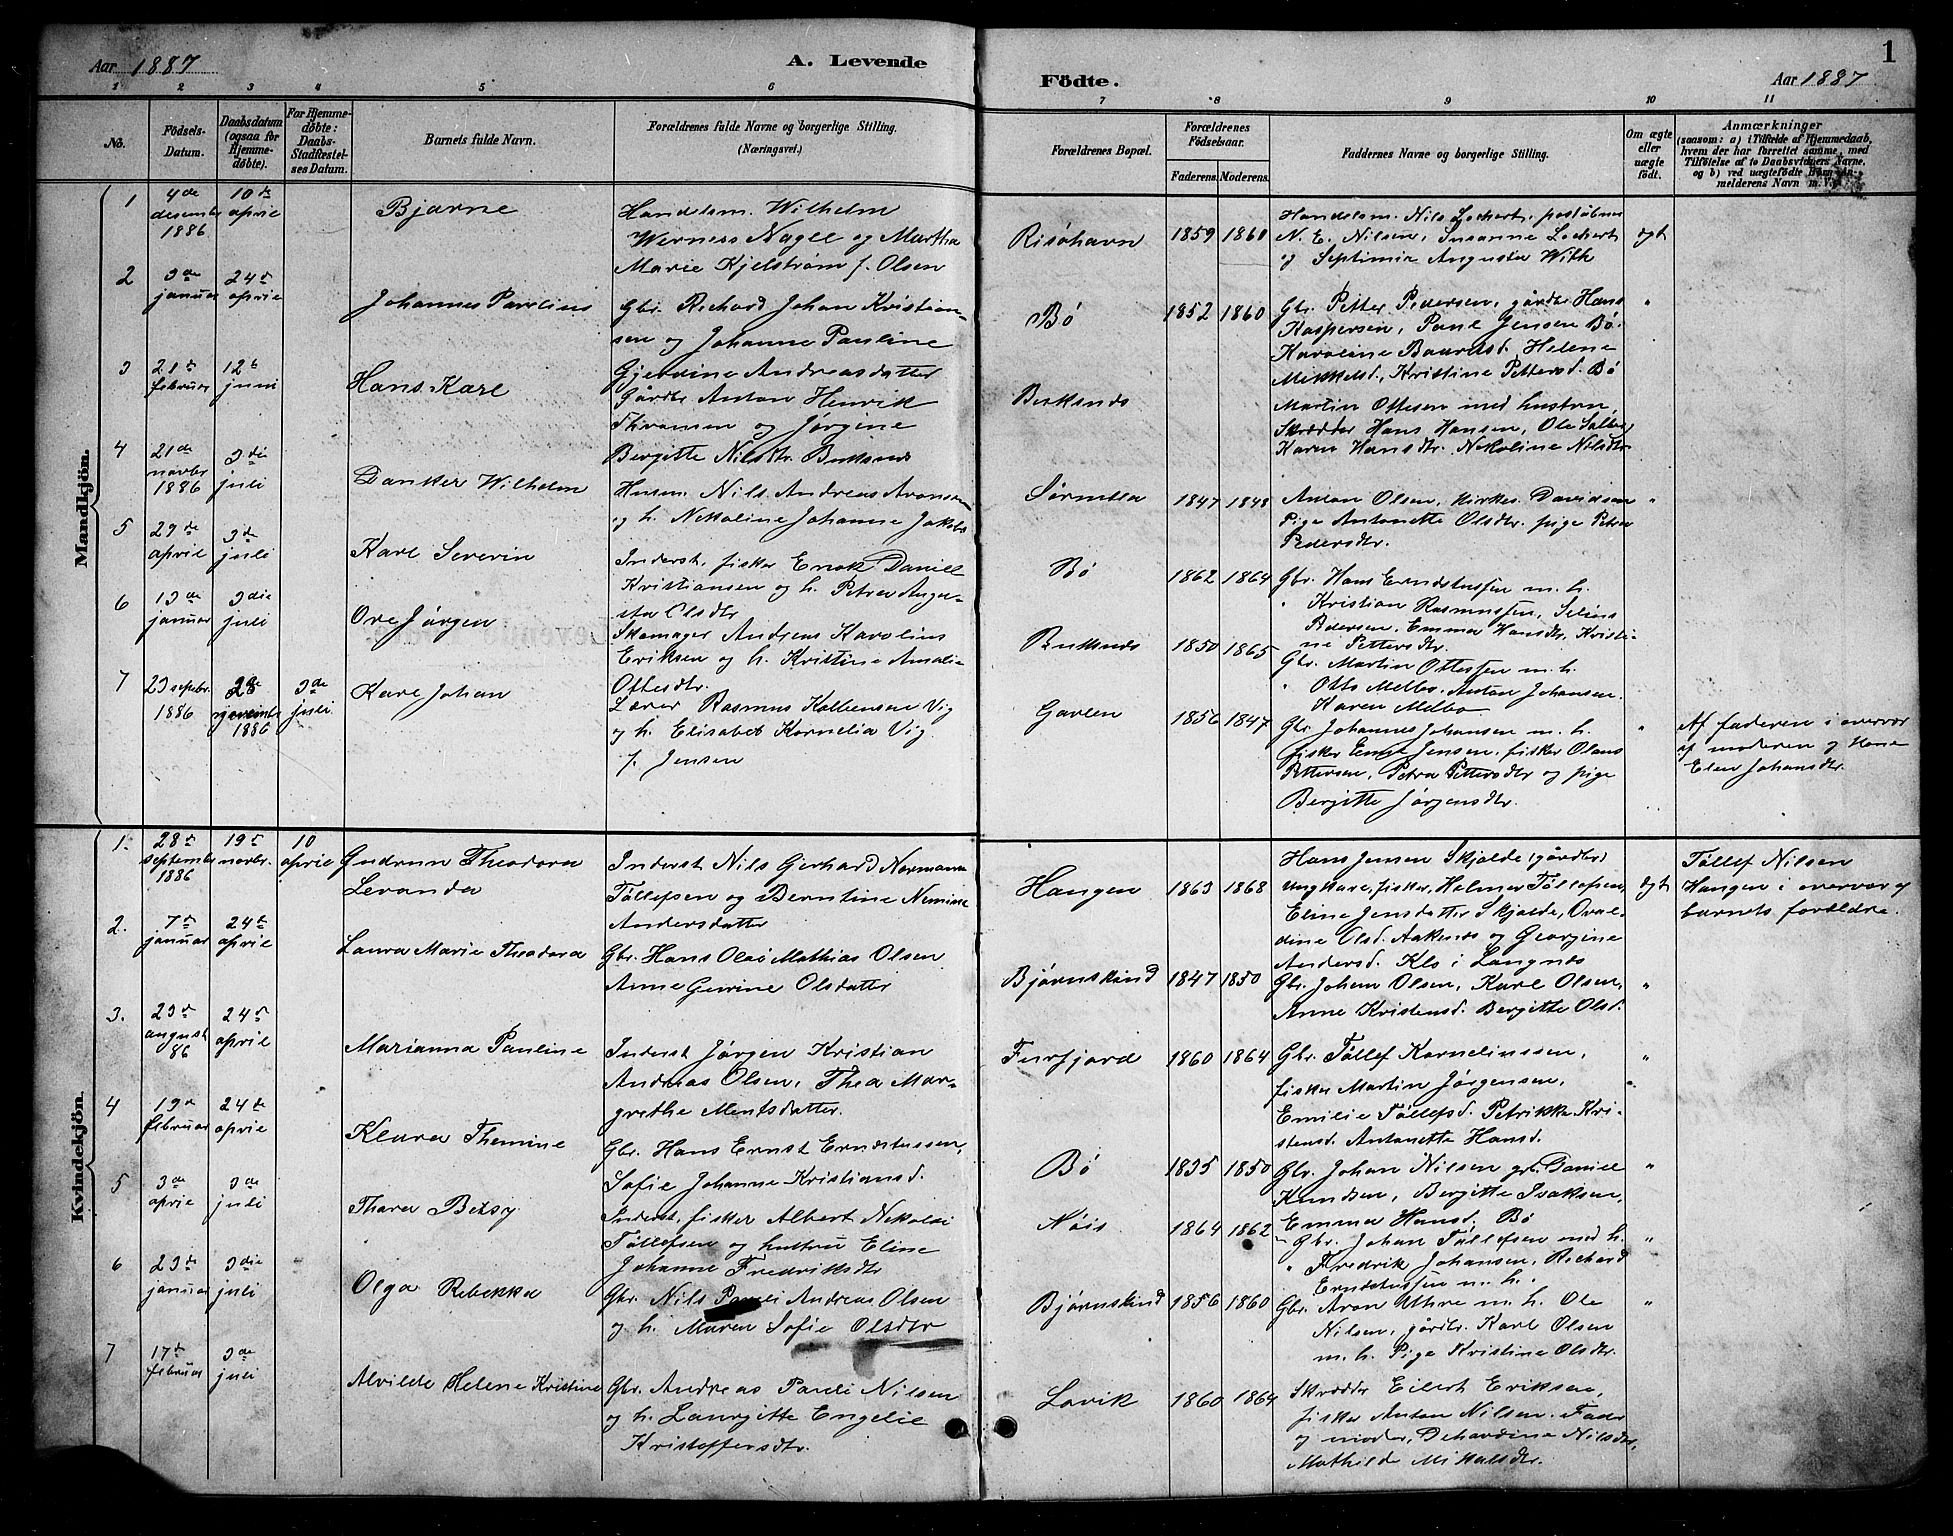 Aar 1887
A. Levende
Födte.
Aar 1887
1
1 2 3 4 5 6 7 8 9 10 11
No.
Födsels-Datum.
Daabsdatum (ogsaa for Hjemmedøbte).
For Hjemmedøbte: Daabs-Stadfæstelses Datum.
Barnets fulde Navn.
Forældrenes fulde Navne og borgerlige Stilling. (Næringsvei.)
Forældrenes Bopæl.
Forældrenes Födselsaar. Faderens. Moderens.
Faddernes Navne og borgerlige Stilling.
Om ægte eller uægte födt.
Anmærkninger
(saasom: a) i Tilfælde af Hjemmedaab,
hvem der har forrettet samme, med
Tilföielse af to Daabsvidners Navne,
og b) ved uægtefödte Börn An-
melderens Navn m. V.)
Mandkjön.
1
4de desembr 1886
10de april
Bjarne
Handelsm. Wilhelm
Werness Nagel og Martha
Marie Kjelström f. Olsen
Risöhavn
1859 1860
Handelsm. Nils Lockert, poståbner
N. E. Nilsen, Susanne Lockert
og Septimia Augusta With
ægt
2
3de januar
24de april
Johannes Paulinus
Gbr. Richard Johan Kristian-
sen og Johanne Pauline
Gjerdine Andreasdatter
Bö
1852 1860
Gbr. Petter Pedersen, gårdbr. Hans
Kaspersen, Paul Jensen Bö.
Karoline Baardsd. Helene
Mikkelsd., Kristine Pettersd. Bö
"
3
21de februar
12te juni
Hans Karl
Gårdbr Anton Henrik
Thomsen og Jörgine
Bergitte Nilsdtr. Buksnes
Buksnes
Martin Ottesen med hustru,
Skrædder Hans Hansen, Ole
Karen Hansdtr. Nekoline Nilsdtr
4
21de novbr 1886
3die juli
Danker Wilhelm
Husm. Nils Andreas Aronsen
og h. Nekoline Johanne Jakobs
Sörmela
1847 1848
Anton Olsen, kirkes. Davidsen
Pige Antonette Olsdtr. pige Petra
Pedersdtr.
"
5
29de april
3de juli
Karl Severin
Inderst, fisker Enok Daniel
Kristiansen og h. Petra Augu-
sta Olsdtr
Bö
1862 1864
Gbr. Hans Erndstussen m. h.
" Kristian Rasmussen, Selius
Pedersen, Emma Hansdtr, Kristi-
ne Pettersdtr.
6
13de januar
3die juli
Ove Jörgen
Skomager Andreas Karolius
Eriksen og h. Kristine Amalie
Ottesdtr.
Buksnes
1850 1865
Gbr. Martin Ottessen m. h.
" Otto Melbo. Anton Johansen.
Karen Melbo
7
23 septbr. 1886
28 november 1886
3de juli
Karl Johan
Lærer Rasmus Kolbensen Vig
og h. Elisabet Kornelia Vig
f. Jensen
Gavlen
1856 1847
Gbr. Johannes Johansen m. h.
fisker Enok Jensen, fisker Olaus
Pettersen, Petra Pettersdtr og pige
Bergitte Jörgensdtr.
"
Af faderen i overvær
af moderen og Kone
Elen Johansdtr.
Kvindekjön.
1.
28de september 1886
19de novbr.
10 april
Gudrun Theodora
Levanda
Inderst Nils Gerhard Normann
Töllefsen og Berntine Nemine
Andersdatter
Haugen
1863 1868
Hans Jensen Skjolde (gårdbr)
Ungkarl, fisker, Helmer Töllefsen,
Eline Jensdatter Skjolde, Oval-
dine Olsd. Aaknes og Georgine
Andersd. Klo i Langnes
ægt
Töllef Nilsen
Haugen i overvær af
barnets foreldre.
2.
7de januar
24de april
Laura Marie Theodora
Gbr. Hans Olai Mathias Olsen
Anne Gurine Olsdatter
Björnskind
1847 1850
Gbr. Johan Olsen, Karl Olsen,
Anne Kristensd. Bergitte Olsd.
"
3.
23de august 86
24de april
Marianna Pauline
Inderst Jörgen Kristian
Andreas Olsen, Thea Mar-
grethe Mentsdatter.
Furfjord
1860 1864
Gbr. Töllef Kornelinssen,
fisker Martin Jörgensen,
Emilie Töllefsd. Petrikke Kri-
stensd. Antonette Hansd.
"
4
19de februar
24de april
Klara Themine
Gbr. Hans Ernst Erndstussen,
Sofie Johanne Kristiansd.
Bö
1835 1850
Gbr. Johan Nilsen, gbr. Daniel
Knudsen, Bergitte Isaksen,
Emma Hansd. Bö
"
5
3de april
3de juli
Thora Betsy
Inderst, fisker Albert Nekolai
Töllefsen og hustru Eline
Johanne Fredriksdtr
Nöis
1864 1862
Gbr. Johan Töllefsen med h.
" Fredrik Johansen, Richard
Erndstussen m. h.
"
6
23de januar
3die juli
Olga Rebekka
Gbr. Nils Pauli Andreas Olsen
og h. Maren Sofie Olsdtr
Björnskind
1856 1860
Gbr. Aron Uhre m. h. Ole
Nilsen, gårdbr. Karl Olsen
m. h. Pige Kristine Olsdtr.
"
7
17de februar
3de juli
Alvilde Helene Kristine
Gbr. Andreas Pauli Nilsen
og h. Laurgitte Engelie
Kristoffersdtr.
Lovik
1860 1864
Skrædder Eilert Eriksen,
fisker Anton Nilsen. Fader
og moder, Dehardine Nilsdtr,
Mathilde Mikalsdtr.